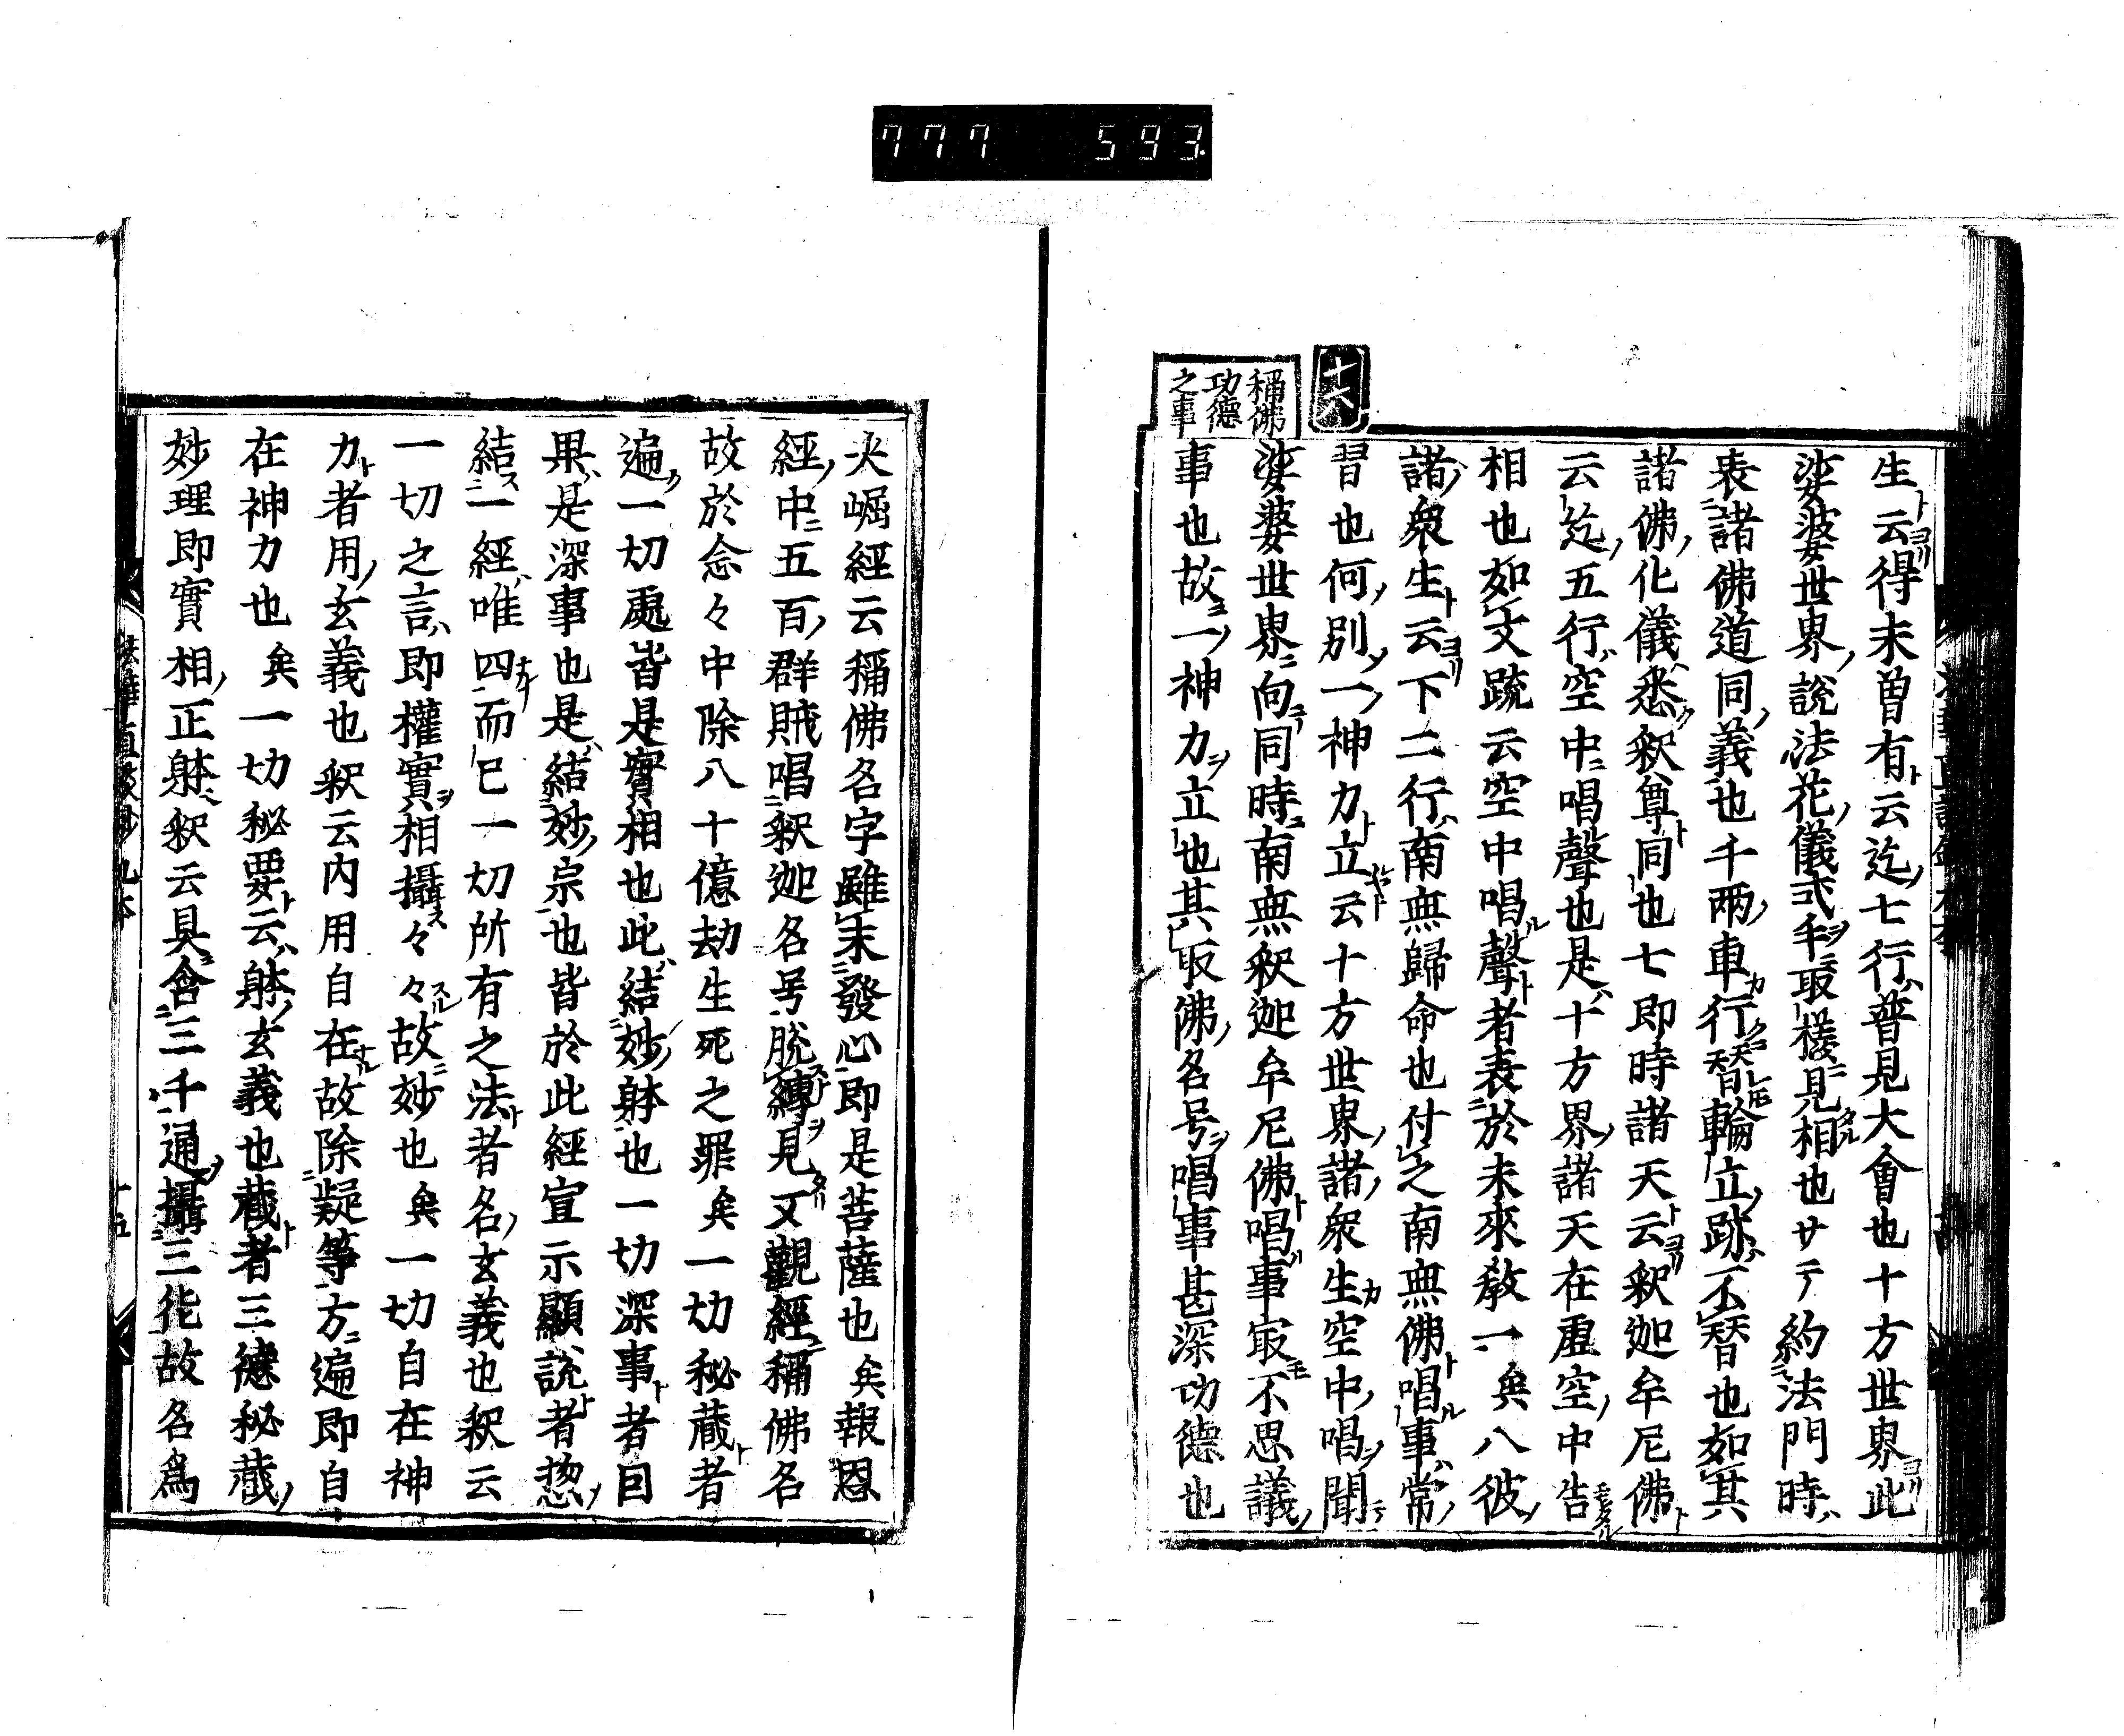 777 593
十六
稱佛
功德
之事
生ト云ヨリ得未曽有ト云迄ノ七行ハ普見大會也十方世界ヨリ此
娑婆世界ノ說法花ノ儀式ヲ手取樣ニ見タル相也サテ約法門時ハ
表諸佛道同ノ義也千兩ノ車カ行クニ天替レ𪜈輪立ノ跡ハ不替也如其
諸佛ノ化儀ハ悉ク釈尊ト同也七即時諸天ト云ヨリ釈迦牟尼佛ト
云迄ノ五行ハ空中ニ唱聲也是ハ十方界ノ諸天在虛空ノ中告玉ヘル
相也如文䟽云空中唱ル聲ト者表於未來教一矣八彼ノ
諸ノ衆生ト云ヨリ下二行ハ南無歸命也付之南無佛ト唱ル事ハ常ノ
習也何ノ別ノ一ノ神力ト立ルヤト云十方世界ノ諸ノ衆生カ空中ノ唱ヲ聞テ
娑婆世界ニ向テ同時ニ南無釈迦牟尼佛ト唱事最モ不思議ノ
事也故ニ一ノ神力ヲ立也其取佛ノ名号ヲ唱事甚深功德也
火崛經云稱佛名字雖未發心即是菩薩也矣報恩
經ノ中ニ五百ノ群賊唱釈迦名号脫縛ヲ見タリ又觀經ニ稱佛名
故於念々中除八十億劫生死之罪矣一切秘藏ト者
遍ク一切處皆是實相也此ハ結妙ノ躰也一切深事ト者因
果ハ是深事也是ハ結妙ノ宗也皆於此經宣示顯說ト者惣ノ
結ス一經ハ唯四ナホ而已一切所有之法ト者名ノ玄義也釈云
一切之言ハ即權實ヲ相攝ス々々スル故ニ妙也矣一切自在神
力ト者用ノ玄義也釈云内用自在ナル故除疑等方ニ遍即自
在神力也矣一切秘要ト云ハ躰ノ玄義也藏ト者三德秘藏ノ
妙理即實相ノ正躰ヘ釈云具ニ含三千通ヲ攝三能故名爲